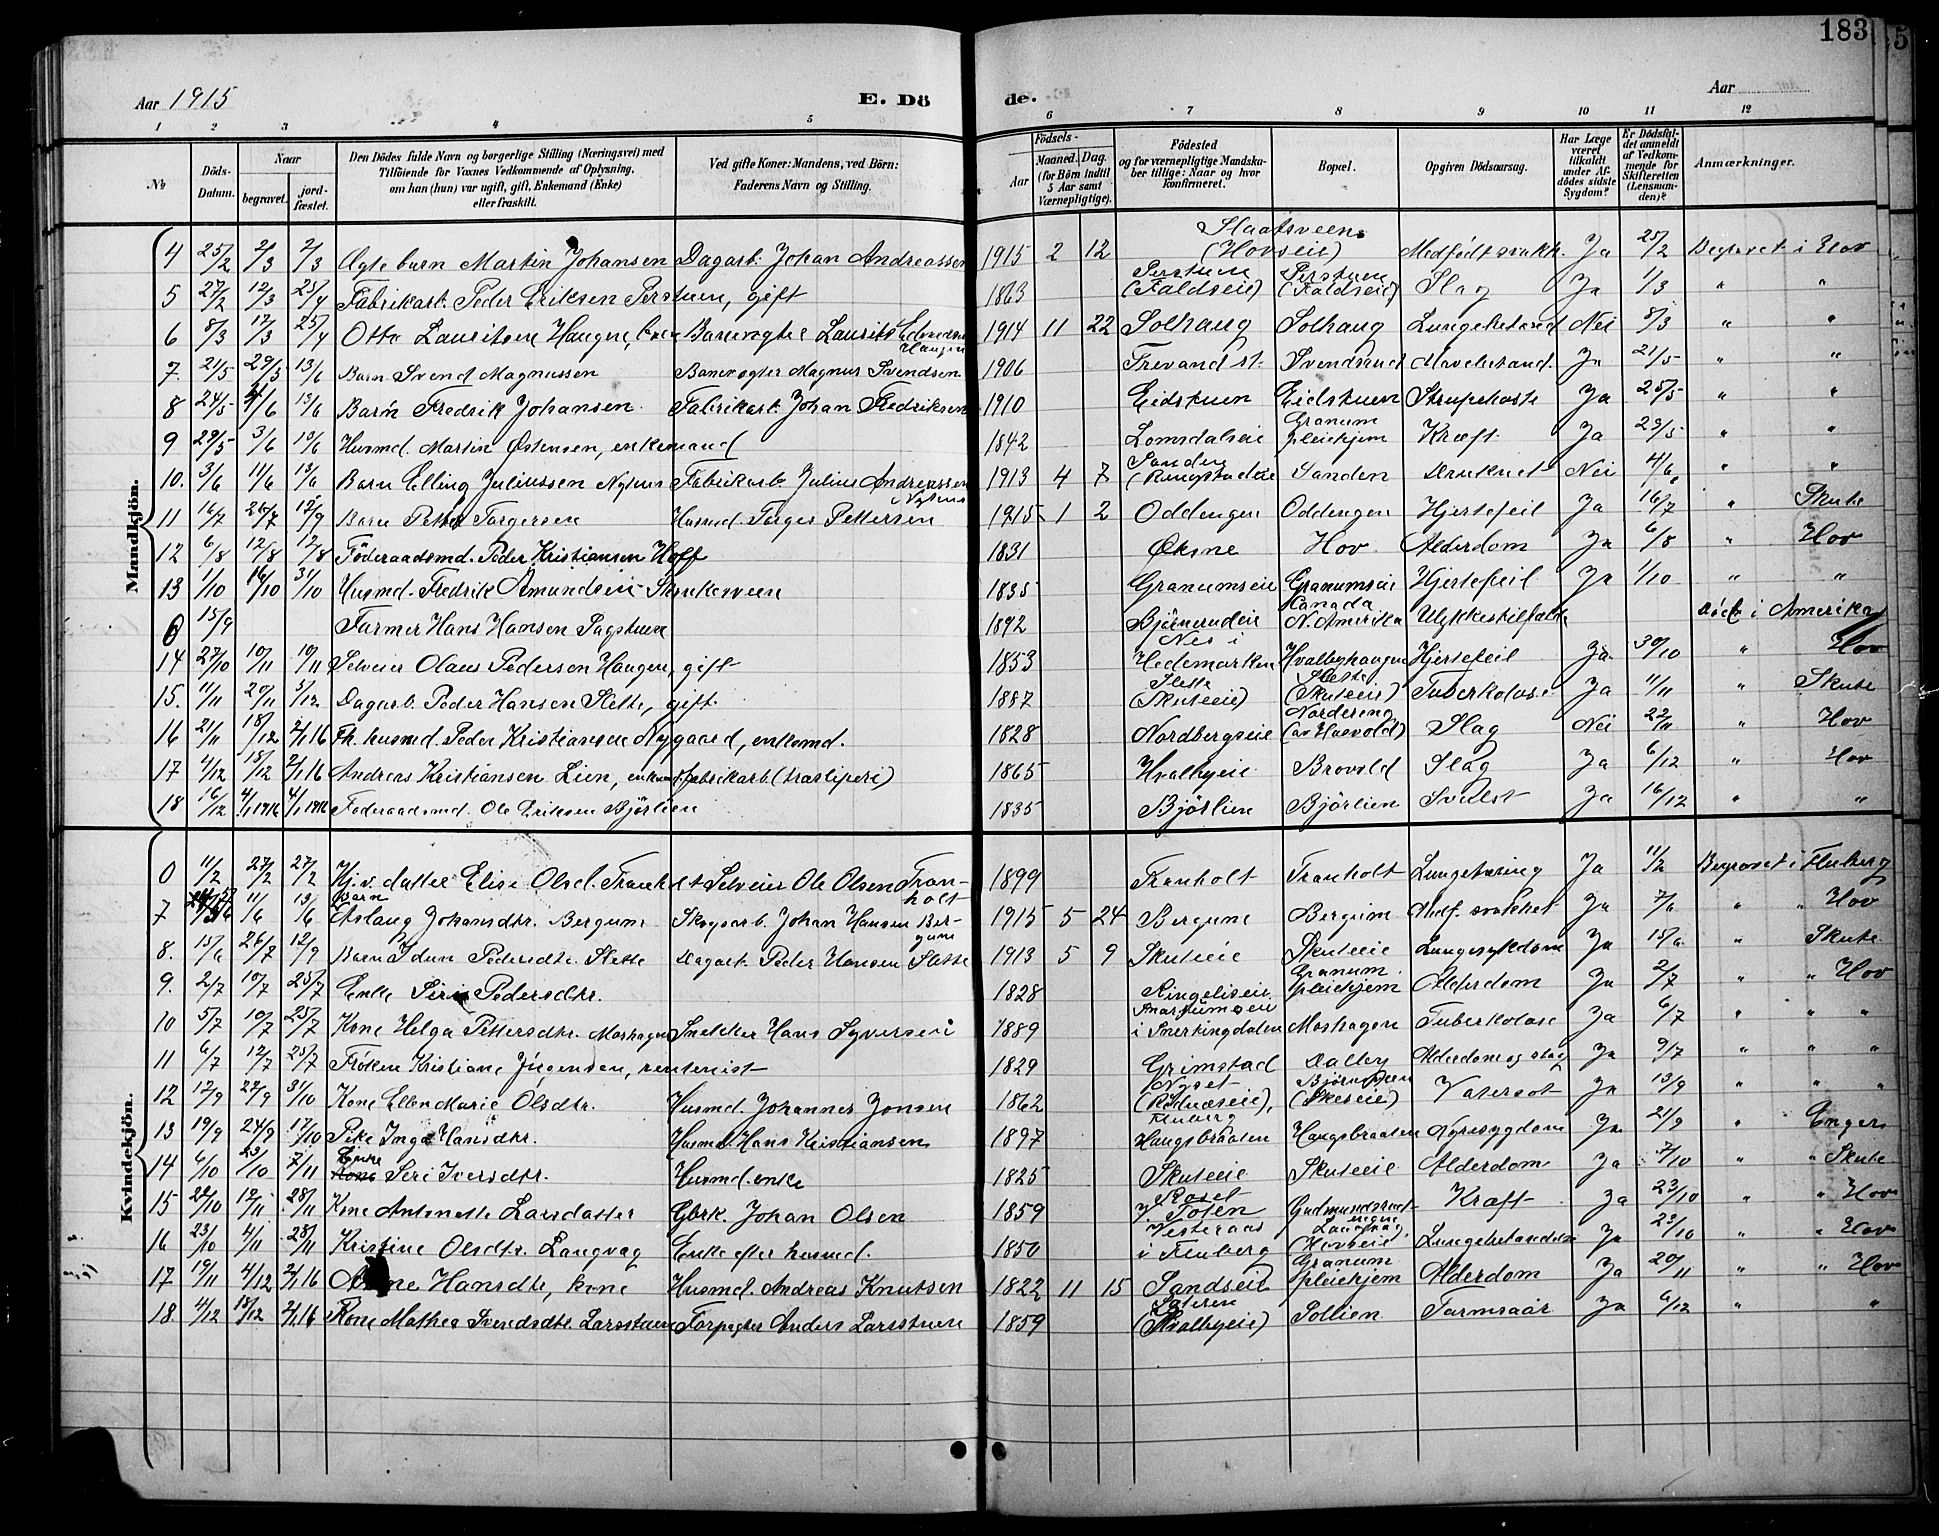 183
5
Aar 1915
E. Dö
de.
Aar
1 2 3 4 5 6 7 8 9 10 11 12
No
Döds-Datum.
Naar
begravet.
jord-fæstet.
Den Dödes fulde Navn og borgerlige Stilling (Næringsvei) med
Tilföiende for Voxnes Vedkommende af Oplysning,
om han (hun) var ugift, gift, Enkemand (Enke)
eller fraskilt.
Ved gifte Koner: Mandens, ved Börn:
Faderens Navn og Stilling.
Födsels-
Aar
Maaned. Dag.
(for Börn indtil
5 Aar samt
Værnepligtige).
Födested
og for værnepligtige Mandska-
ber tillige: Naar og hvor
konfirmeret.
Bopæl.
Opgiven Dödsaarsag.
Har Læge
været
tilkaldt
under Af-
dödes sidste
Sygdom?
Er Dödsfal-
det anmeldt
af Vedkom-
mende for
Skifteretten
(Lensman-
den)?
Anmærkninger.
Mandkjön.
4 25/2 2/3 2/3 Ægte barn Martin Johansen Dagarb. Johan Andreassen 1915 2 12 (Hovseie) Medfødt svakh. Ja 25/2 Begravet i Hov
5 27/2 12/3 25/4 Fabrikarb. Peder Eriksen Perstuen, gift 1863 Perstuen (Faldseie) Perstuen (Faldseie) Slag Ja 1/3 " "
6 8/3 17/3 25/4 Otto Lauritsen Haugen, Banevogter Laurits Haugen 1914 11 22 Solhaug Solhaug Lungebetænd Nei 8/3 " "
7. 21/5 29/5 13/6 Barn Svend Magnussen Banevogter Magnus Svendsen 1906 Trevand st. Svendsrud Mavebetænd. Ja 21/5 " "
8 24/5 4/6 13/6 Barn Fredrik Johansen. Fabrikarb. Johan Fredriksen 1910 Eidstuen Eidstuen Strupehoste Ja 25/5 " "
9 29/5 3/6 13/6 Husmd. Martin Østensen, enkemand 1842 Lomsdalseie Granum pleiehjem Kræft. Ja 23/5 " "
10. 3/6 11/6 13/6 Barn Elling Juliussen Nyhus Fabrikarb. Julius Andreassen Nyhus 1913 4 7 Sanden (Ringstadeie Sanden Druknet Nei 4/6 " "
11 16/7 26/7 12/9 Barn Petter Torgersen Husmd. Torger Pettersen 1915 1 2 Oddengen Oddengen Hjertefeil Ja 16/7 " Skute
12 6/8 12/8 12/8 Föderaadsmd. Peder Kristiansen Hoff 1831 Øksne Hov Alderdom Ja 6/8 " Hov
13 1/10 16/10 31/10 Husmd. Fredrik Amundsen Skrukesveen 1835 Granumseie Granumseie Hjertefeil Ja 1/10 " "
0 15/9 Farmer Hans Hansen Pagstuen 1892 Björnerudeie Canada N. Amerika Ulykkestilfælde Död i Amerika
14 27/10 10/11 10/11 Selveier Olaus Pedersen Haugen, gift 1853 Nes i Hedemarken Hvalbyhaugen Hjertefeil Ja 30/10 " Hov
15. 11/11 20/11 5/12 Dagarb. Peder Hansen Slette, gift 1887 Slette (Skuteeie) Slette (Skuteeie) Tuberkolose Ja 11/11 " Skute
16 21/11 18/12 2/1 16 Fh. husmd. Peder Kristiansen Nygaard, enkemd. 1828 Nordbergseie Nordereng (av Haevold) Slag Nei 22/11 " Hov
17 4/12 18/12 2/1 16 Andreas Kristiansen Lien, enkemd. fabrikarb. (træsliperi) 1865 Hvalbyeie Brovold Slag Ja 6/12 " Hov
18 16/12 4/1 1916 4/1 1916 Föderaadsmd. Ole Eriksen Björlien 1835 Björlien Björlien Svulst Ja 16/12 " "
Kvindekjön.
0 11/2 27/2 27/2 Hj.v. datter Elise Olsd. Tranholt Selveier Ole Olsen Tranholt 1899 Tranholt Tranholt Lungetæring Ja 11/2 Begravet i Fluberg
7 11/6 13/6 Barn Aslaug Johansdtr. Bergum Skogsarb. Johan Hansen Bergum 1915 5 24 Bergum Bergum Medf. svakhet Ja 7/6 " " Hov
8. 15/6 26/7 12/9 Barn Idun Pedersdtr. Slette Dagarb. Peder Hansen Slette 1913 5 9 Skuteeie Skuteeie Lungesykdom Ja 15/6 " Skute
9. 2/7 10/7 25/7 Enke Siri Pedersdtr. 1828 Ringeliseie Granum pleiehjem Alderdom Ja 2/7 " " Hov
10 5/7 10/7 25/7 Kone Helga Pettersdtr. Moshagen Snekker Hans Syversen 1889 i Snertingdalen Moshagen Tuberkolose Ja 6/7 " " "
11 6/7 12/7 25/7 Frøken Kristiane Jürgensen, rentenist 1829 Grimstad Dalby Alderdom og slag Ja 9/7 " " "
12 12/9 22/9 31/10 Kone Ellen Marie Olsdtr. Husmd. Johannes Jonsen 1862 Nyset Fluberg (Skeseie) Vatersot Ja 13/9 " " "
13 19/9 24/9 17/10 Pike Inga Hansdtr. Husmd. Hans Kristiansen 1897 Haugsbraaten Haugsbraaten Nyresygdom Ja 21/9 " Enger
14 6/10 23/10 7/11 Enke Siri Iversdtr. Husmd. enke 1825 Skuteeie Skuteeie Alderdom Ja 7/10 " " Skute
15 22/10 12/11 28/11 Kone Antonette Larsdatter Gbrk. Johan Olsen 1859 V. Toten Gudmundsrud-engen Kræft Ja 23/10 " " Hov
16 23/10 4/11 28/11 Kristine Olsdtr. Langvag Enke efter husmd. 1850 Vesteraas i Fluberg (Hovseie) Lungebetændelse Ja 23/10 " " Hov
17 19/11 4/12 2/1 16 Anne Hansdtr, kone Husmd. Andreas Knutsen 1822 11 15 Sandseie Granum pleiehjem Alderdom Ja 20/11 " " Hov
18 4/12 18/12 2/1 16 Kone Mathea Svendsdtr. Larsstuen Forpagter Anders Larsstuen 1859 (Hvalbyeie) Sollien Tarmsaar Ja 6/12 " "